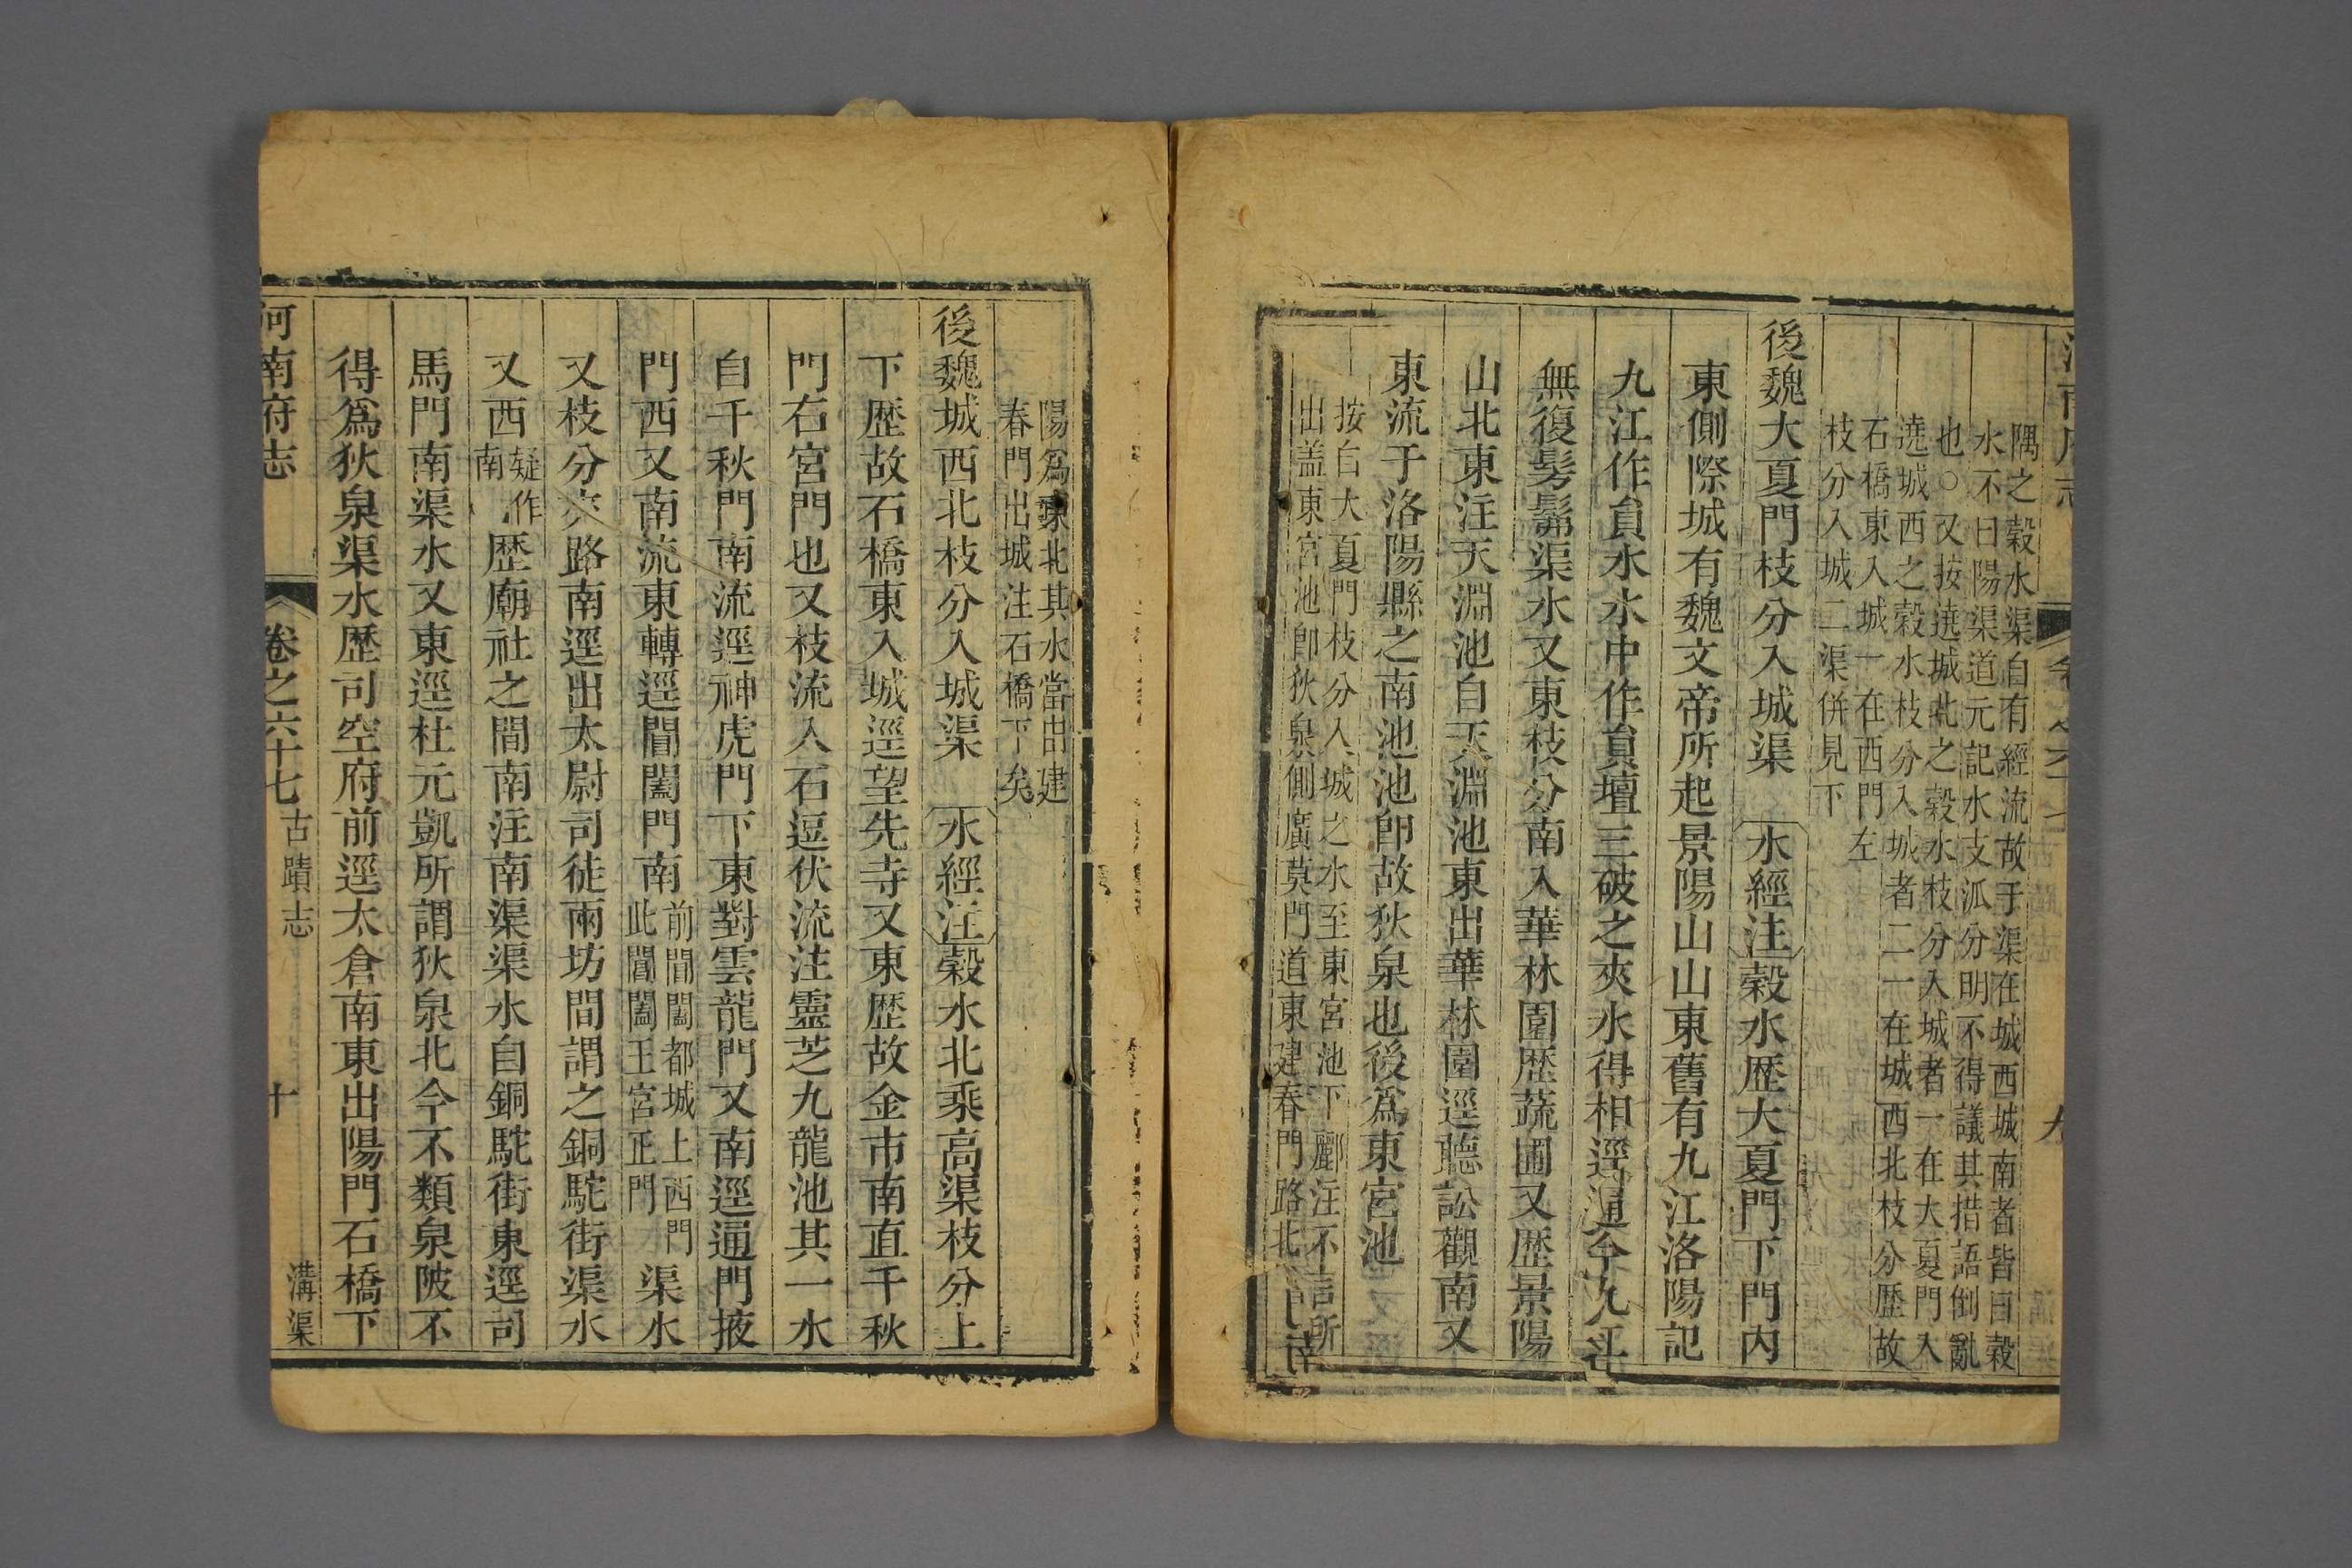 隅之穀水渠自有經流故于渠在城西城南者皆曰穀
水不曰陽渠道元記水支派分明不得議其措語倒亂
也○又按遶城北之穀水枝分入城者一在大夏門入
遶城西之穀水枝分入城者二一在城西北枝分歷故
石橋東入城一在西門左
枝分入城二渠併見下
後魏大夏門枝分入城渠 水經注穀水歷大夏門下門內
東側際城有魏文帝所起景陽山山東舊有九江洛陽記
九江作貟水水中作貟壇三破之夾水得相逕通今九江
無復髣髴渠水又東枝分南入華林園歷蔬圃又歷景陽
山北東注天淵池自天淵池東出華林園逕聽訟觀南又
東流于洛陽縣之南池池卽故狄泉也後爲東宮池
按自大夏門枝分入城之水至東宮池下酈注不言所
出盖東宮池卽狄泉側廣莫門道東建春門路北
陽爲東北其水當由建
春門出城注石橋下矣
後魏城西北枝分入城渠 水經注穀水北乘高渠枝分上
下歷故石橋東入城逕望先寺又東歷故金市南直千秋
門右宮門也又枝流入石逗伏流注靈芝九龍池其一水
自千秋門南流逕神虎門下東對雲龍門又南逕通門掖
門西又南流東轉逕閶闔門南前閶闔都城上西門此閶闔王宮正門渠水
又枝分夾路南逕出太尉司徒兩坊間謂之銅駝街渠水
又西疑作南歷廟社之間南注南渠渠水自銅駝街東逕司
馬門南渠水又東逕杜元凱所謂狄泉北今不類泉陂不
得爲狄泉渠水歷司空府前逕太倉南東出陽門石橋下
河南府志 卷之六十七 古蹟志 十 溝渠